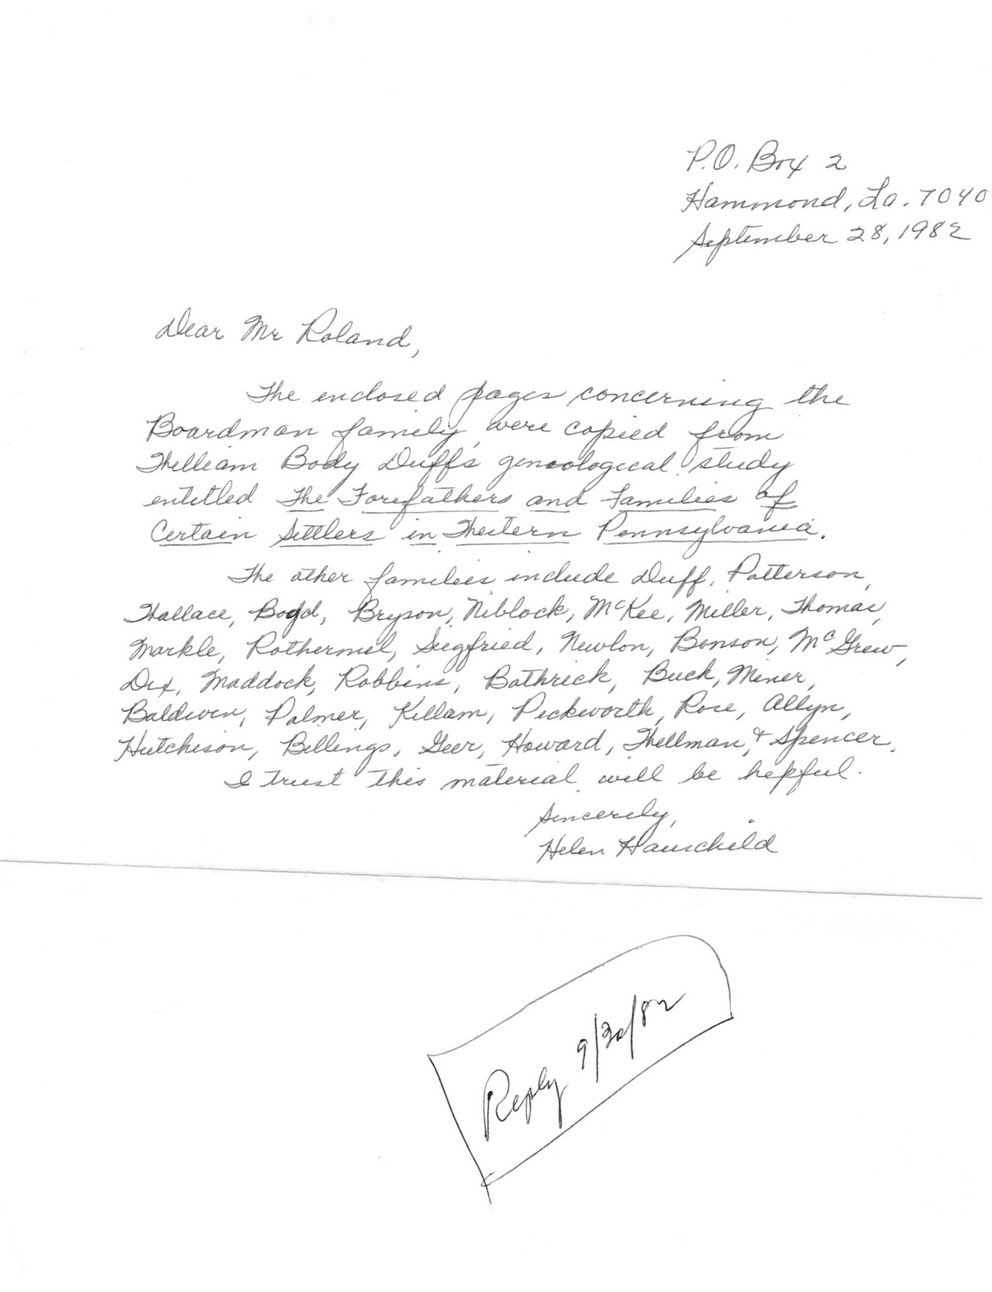 P.O. Box 2
Hammond, La. 7040
September 28, 1982
Dear Mr Roland,
The enclosed pages concerning the
Boardman family were copied from
William Body Duff's geneological study
entitled The Forefathers and Families of
Certain Settlers in Western Pennsylvania.
The other families include Duff, Patterson,
Wallace, Boyd, Bryson, Niblock, McKee, Miller, Thomas,
Markle, Rothermel, Siegfried, Newlon, Benson, McGrew,
Dix, Maddock, Robbins, Bathrick, Buck, Miner,
Baldwin, Palmer, Killam, Peckworth, Rose, Allyn,
Hutchison, Billings, Geer, Howard, Wellman, & Spencer.
I trust this material will be hepful.
Sincerely,
Helen Hauschild
Reply 9/30/82